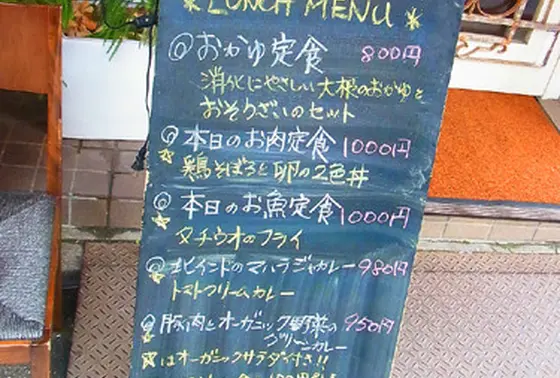 LUNCH MENU
◎おかゆ定食 800円
消化にやさしい大根のおかゆと
おそうざいのセット
◎本日のお肉定食 1000円
☆鶏そぼろと卵の2色丼
◎本日のお魚定食 1000円
☆タチウオのフライ
◎北インドのマハラジャカレー 980円
☆トマトクリームカレー
◎豚肉とオーガニック野菜の 950円
グリーンカレー
☆はオーガニックサラダ付き!!